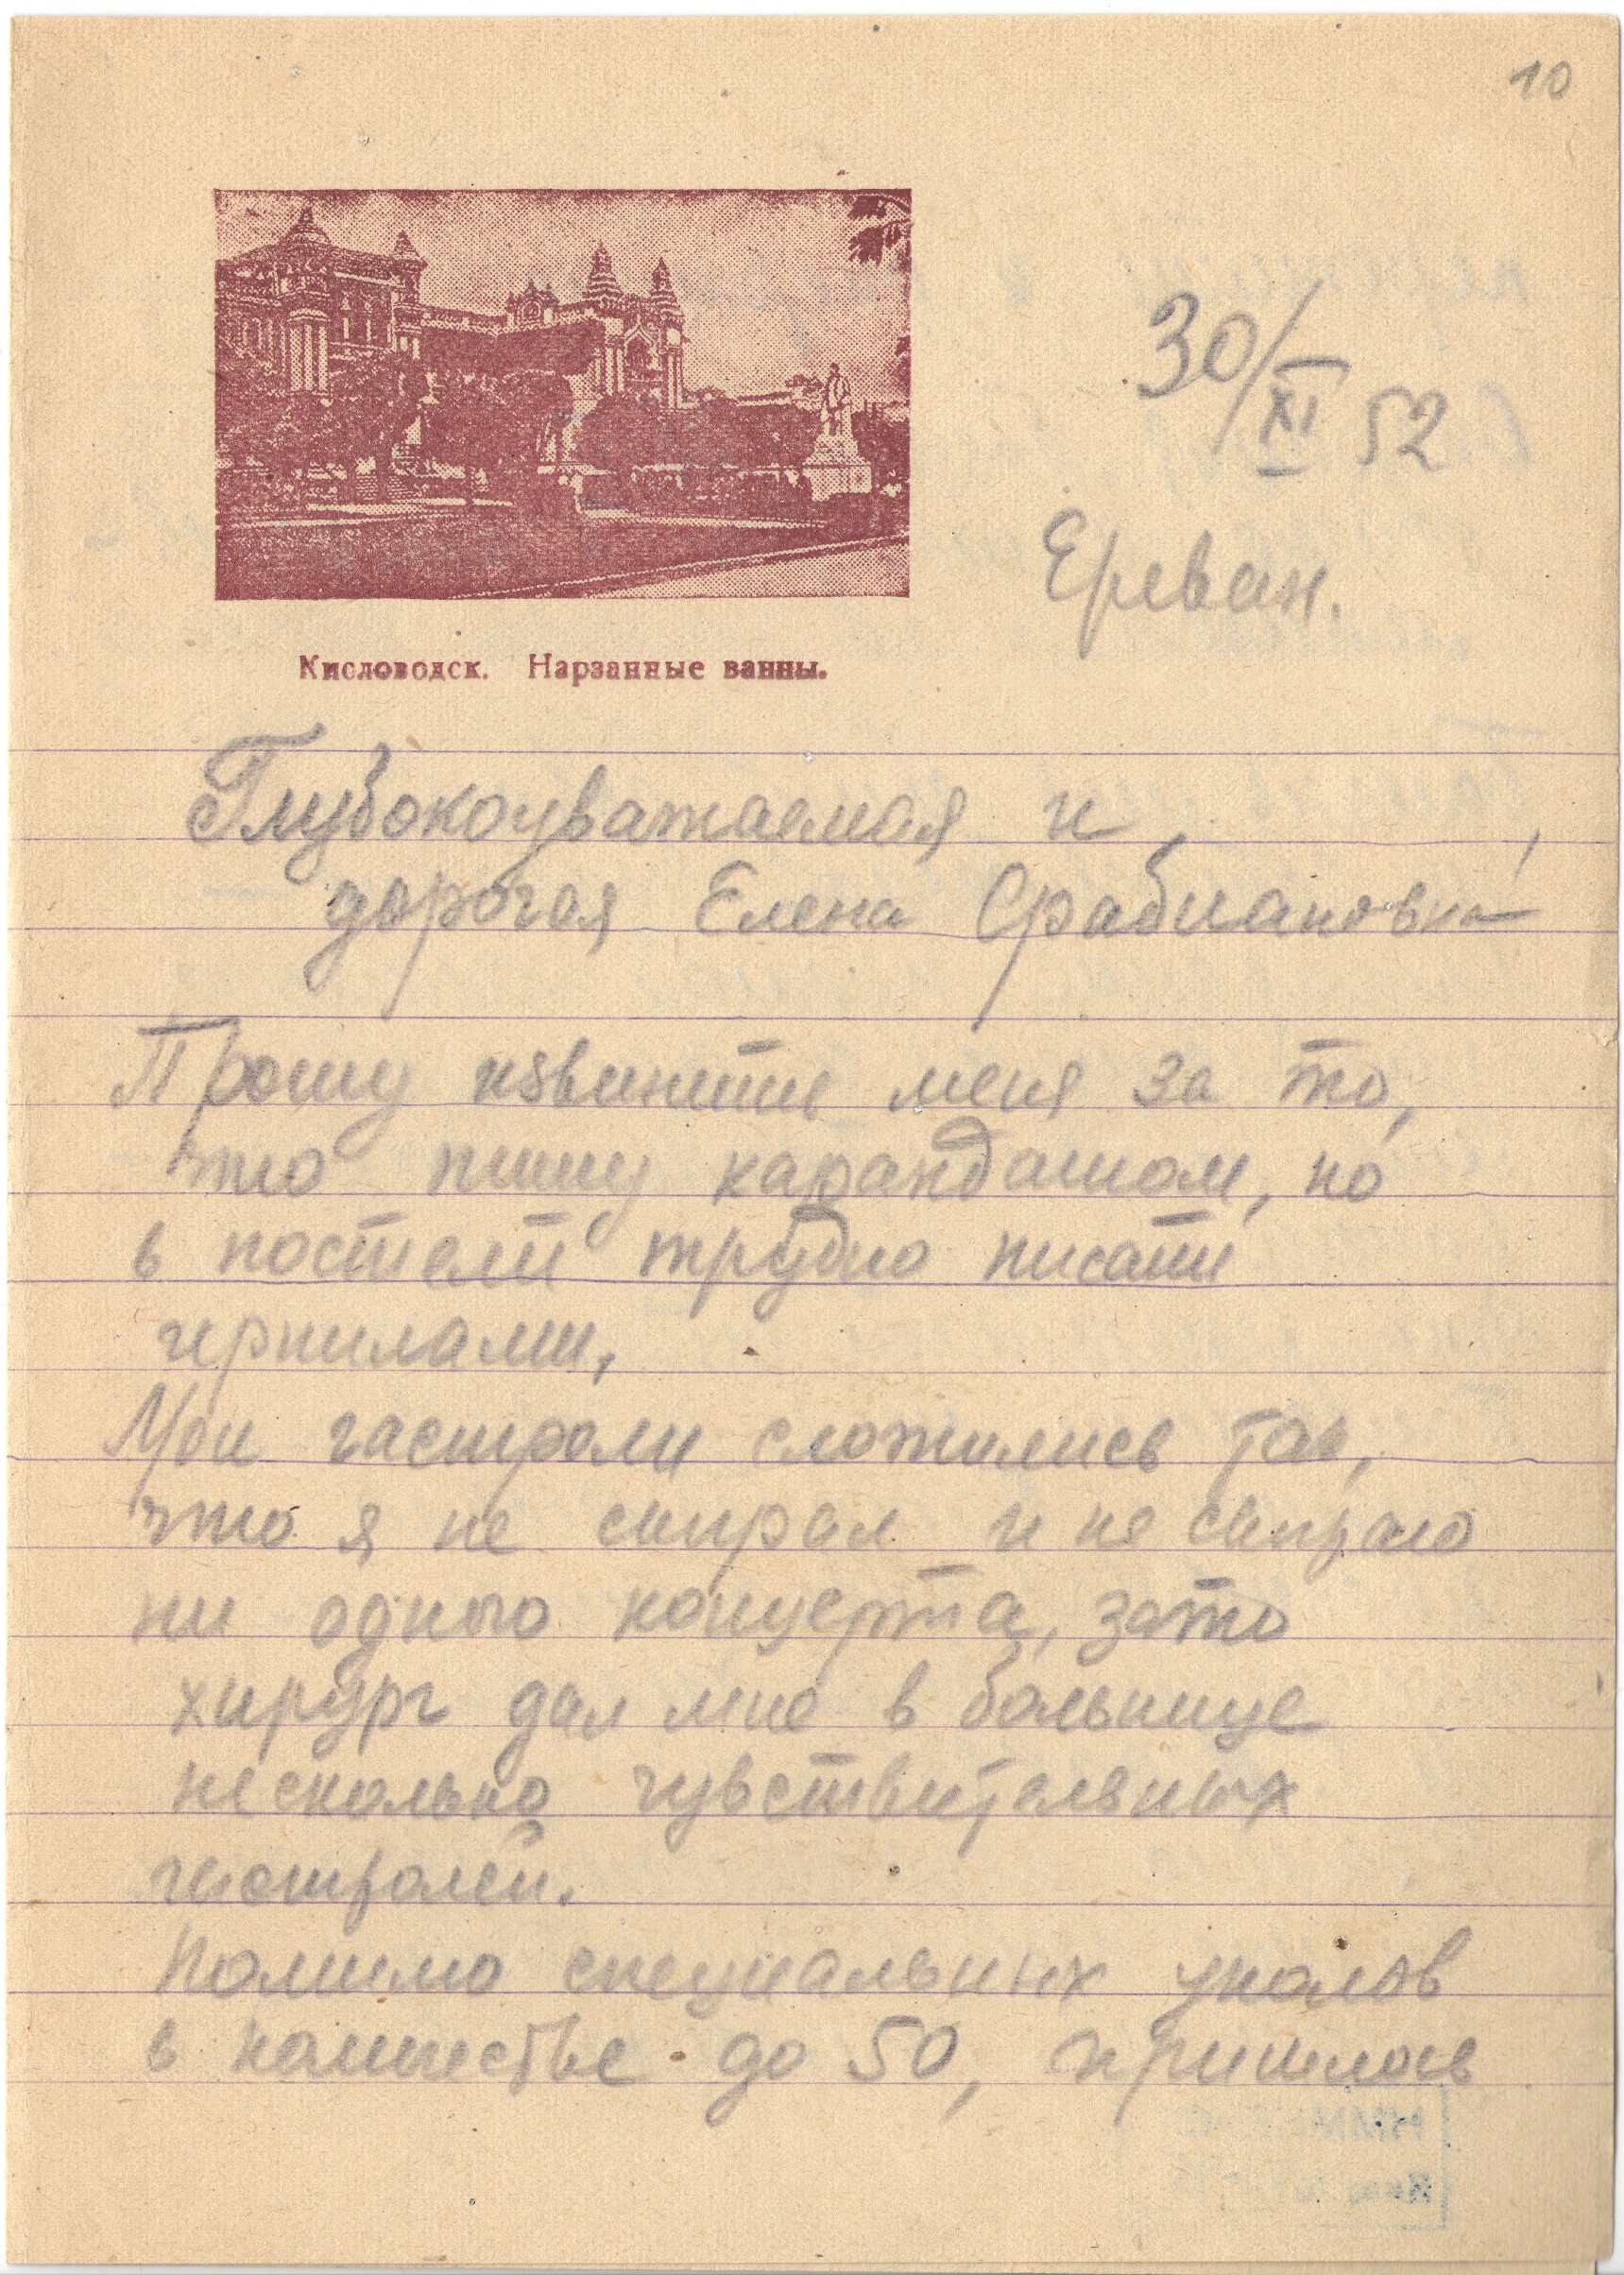 10
30/XI 52
Ереван.
Кисловодск. Нарзанные ванны.
Глубокоуважаемая и
дорогая Елена Фабиановна
Прошу извините меня за то,
что пишу карандашом, но
в постели трудно писать
чернилами,
Мои гастроли сложились так,
что я не сыграл и не сыграю
ни одного концерта, зато
хирург дал мне в больнице
несколько чувствительных
гастролей.
Помимо специальных уколов
в количестве до 50, пришлось